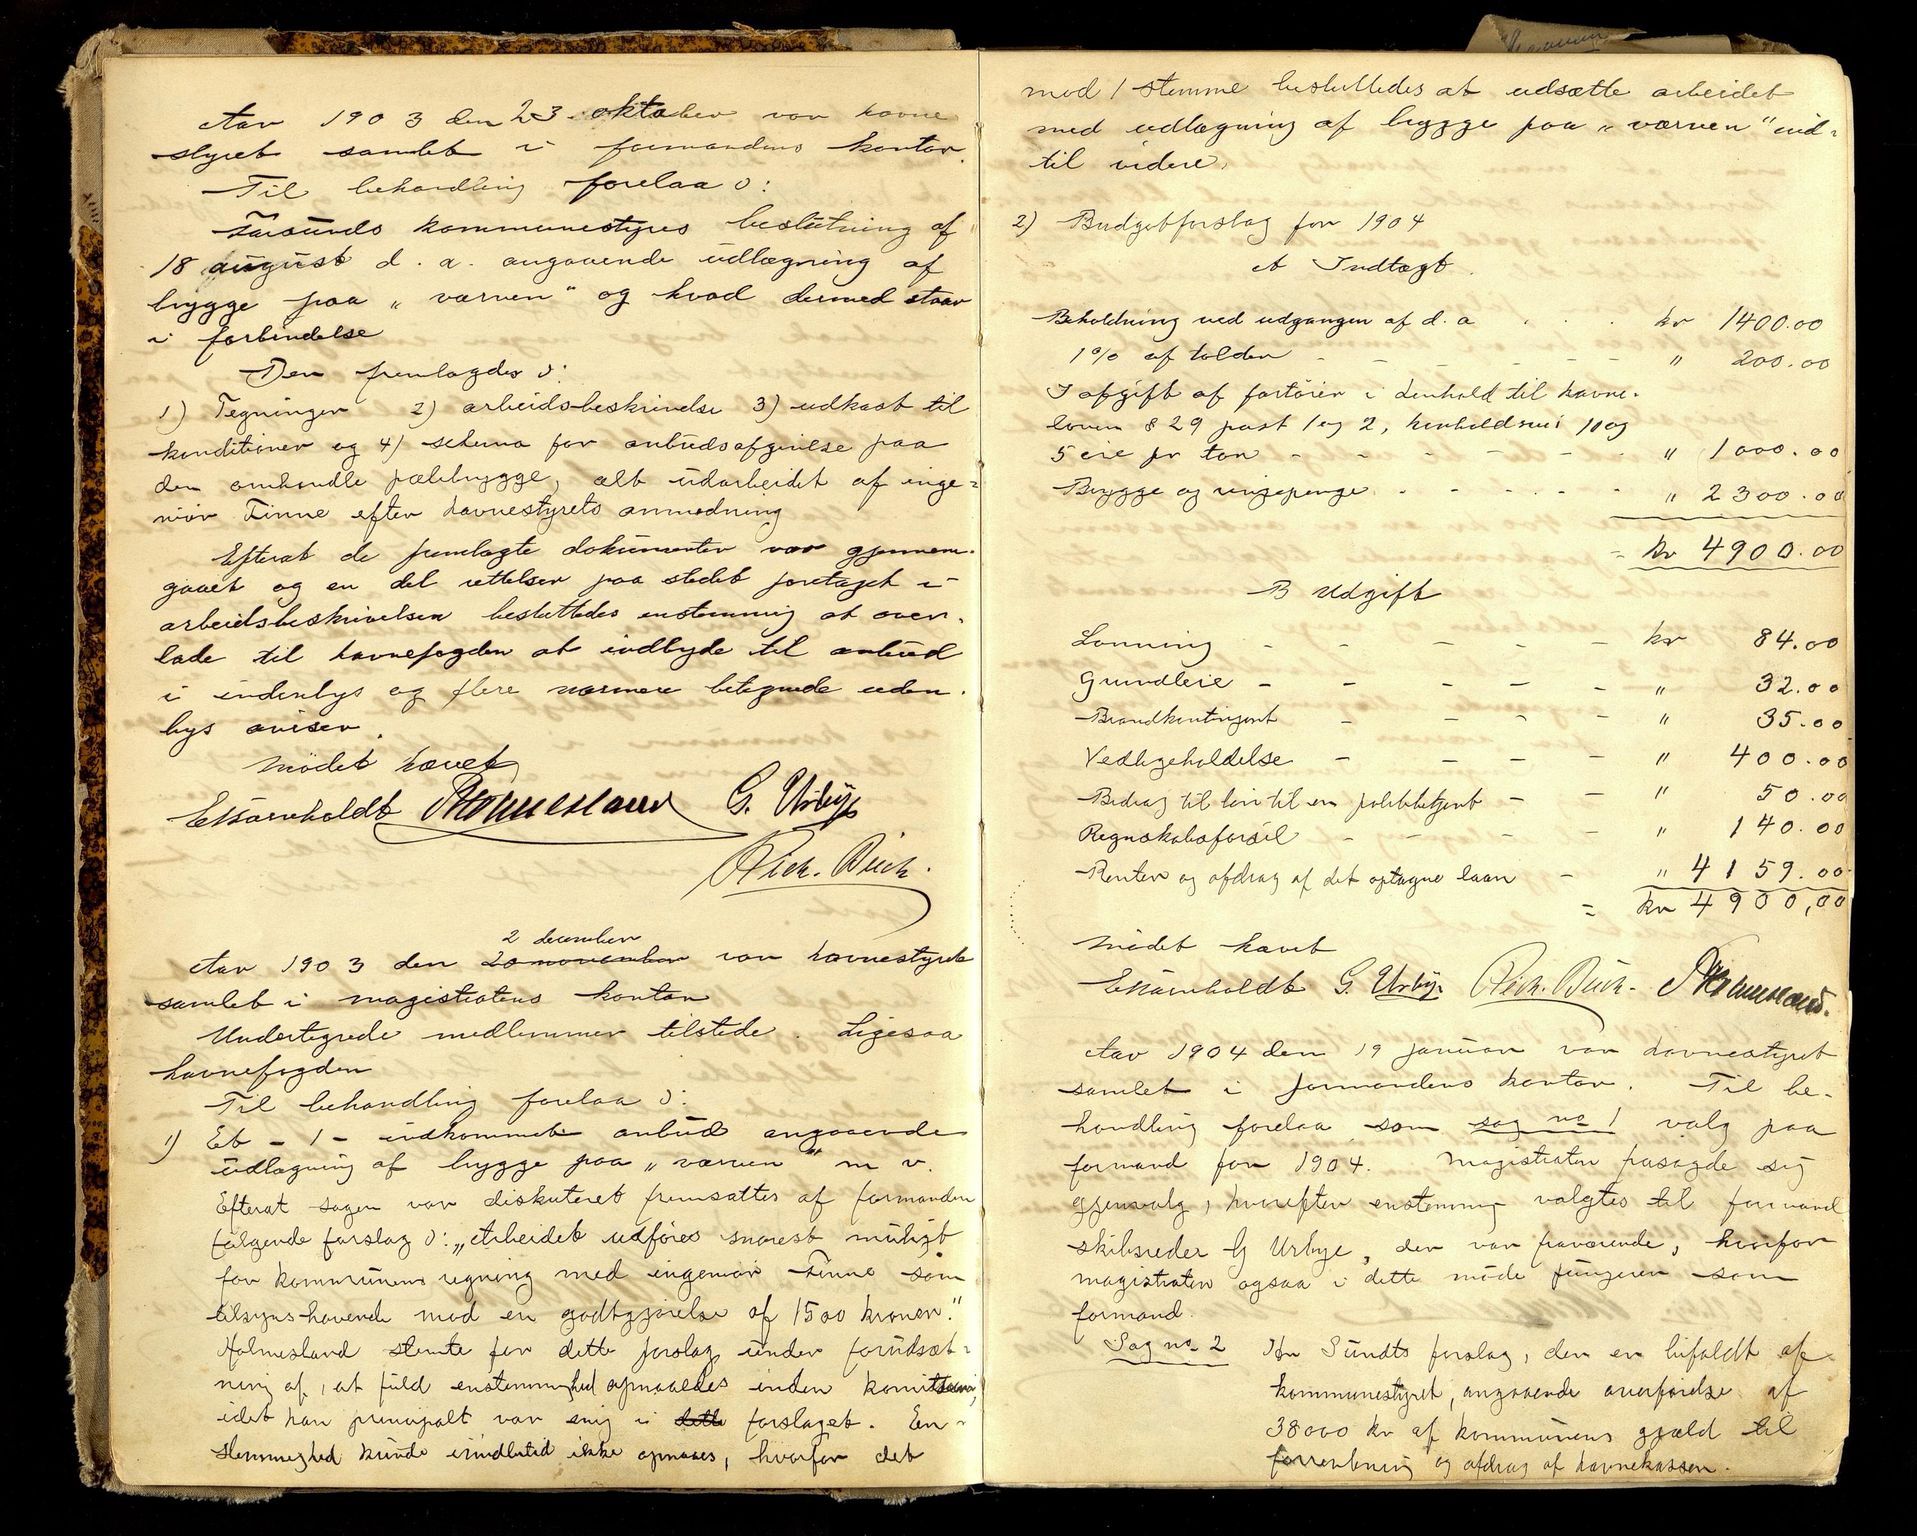 Aar 1903 den 23 oktober var havne
styret samlet i formandens kontor.
Til behandling forelaa ɔ:
Farsunds kommunestyres beslutning af
18 august d. a. angaaende udlægning af
brygge paa „værven“ og hvad dermed staar
i forbindelse
Der fremlagdes ɔ:
1) Tegninger 2) arbeidsbeskrivelse 3) udkast til
konditioner og 4) schema for anbudsafgivelse paa
den omhandlede pælebrygge, alt udarbeidet af inge=
niør Finne efter havnestyrets anmodning
Efterat de fremlagte dokumenter var gjennem-
gaaet og en del rettelser paa stedet foretaget i
arbeidsbeskrivelsen besluttedes enstemmig at over-
lade til havnefogden at indbyde til anbud
i indenbys og flere nærmere betegnede uden-
bys aviser.
Mødet hævet
E Barnholdt T Holmesland G. Urbye
Rich. Buch.
2 december
Aar 1903 den 20 november var havnestyret
samlet i magistratens kontor
Undertegnede medlemmer tilstede. Ligesaa
havnefogden
Til behandling forelaa ɔ:
1) Et - 1 - indkommet anbud angaaende
udlægning af brygge paa „værven“ m v.
Efterat sagen var diskuteret fremsattes af formanden
følgende forslag ɔ: „Arbeidet udføres snarest muligt
for kommunens regning med ingeniør Finne som
tilsynshavende mod en godtgjørelse af 1500 kroner.“
Holmesland stemte for dette forslag under forudsæt-
ning af, at fuld enstemmighed opnaaedes inden
idet han principalt var enig i dette forslaget. En-
stemmighed kunde imidlertid ikke opnaaes, hvorfor det
mod 1 stemme besluttedes at udsætte arbeidet
med udlægning af brygge paa „værven“ ind=
til videre.
2) Budgetforslag for 1904
A Indtægt.
Beholdning ved udgangen af d. a . . . kr 1400.00
1% af tolden - - - - - " 200.00
I afgift af fartøier i henhold til havne-
loven § 29 post 1 og 2, henholdsvis 10 og
5 øre pr ton - - - - - " 1000.00
Brygge og ringepenge - - - - - " 2300.00
= kr 4900.00
B Udgift
Lønning - - - - - kr 84.00
Grundleie - - - - - " 32.00
Brandkontingent - - - - " 35.00
Vedligeholdelse - - - - " 400.00
Bidrag til løn til en politibetjent - - " 50.00
Regnskabsførsel - - - - " 140.00
Renter og afdrag af det optagne laan - " 4159.00
= kr 4900,00
Mødet hævet
E Barnholdt G. Urbye Rich. Buch. T Holmesland.
Aar 1904 den 19 januar var havnestyret
samlet i formandens kontor. Til be-
handling forelaa som sag no 1 valg paa
formand for 1904. Magistraten frasagde sig
gjenvalg, hvorefter enstemmig valgtes til formand
skibsreder G Urbye, der var fraværende, hvorfor
magistraten ogsaa i dette møde fungerer som
formand.
Sag no 2 Hr Sundts forslag, der er bifaldt af
kommunestyret, angaaende overførelse af
38000 kr af kommunens gjæld til
forrentning og afdrag af havnekassen.